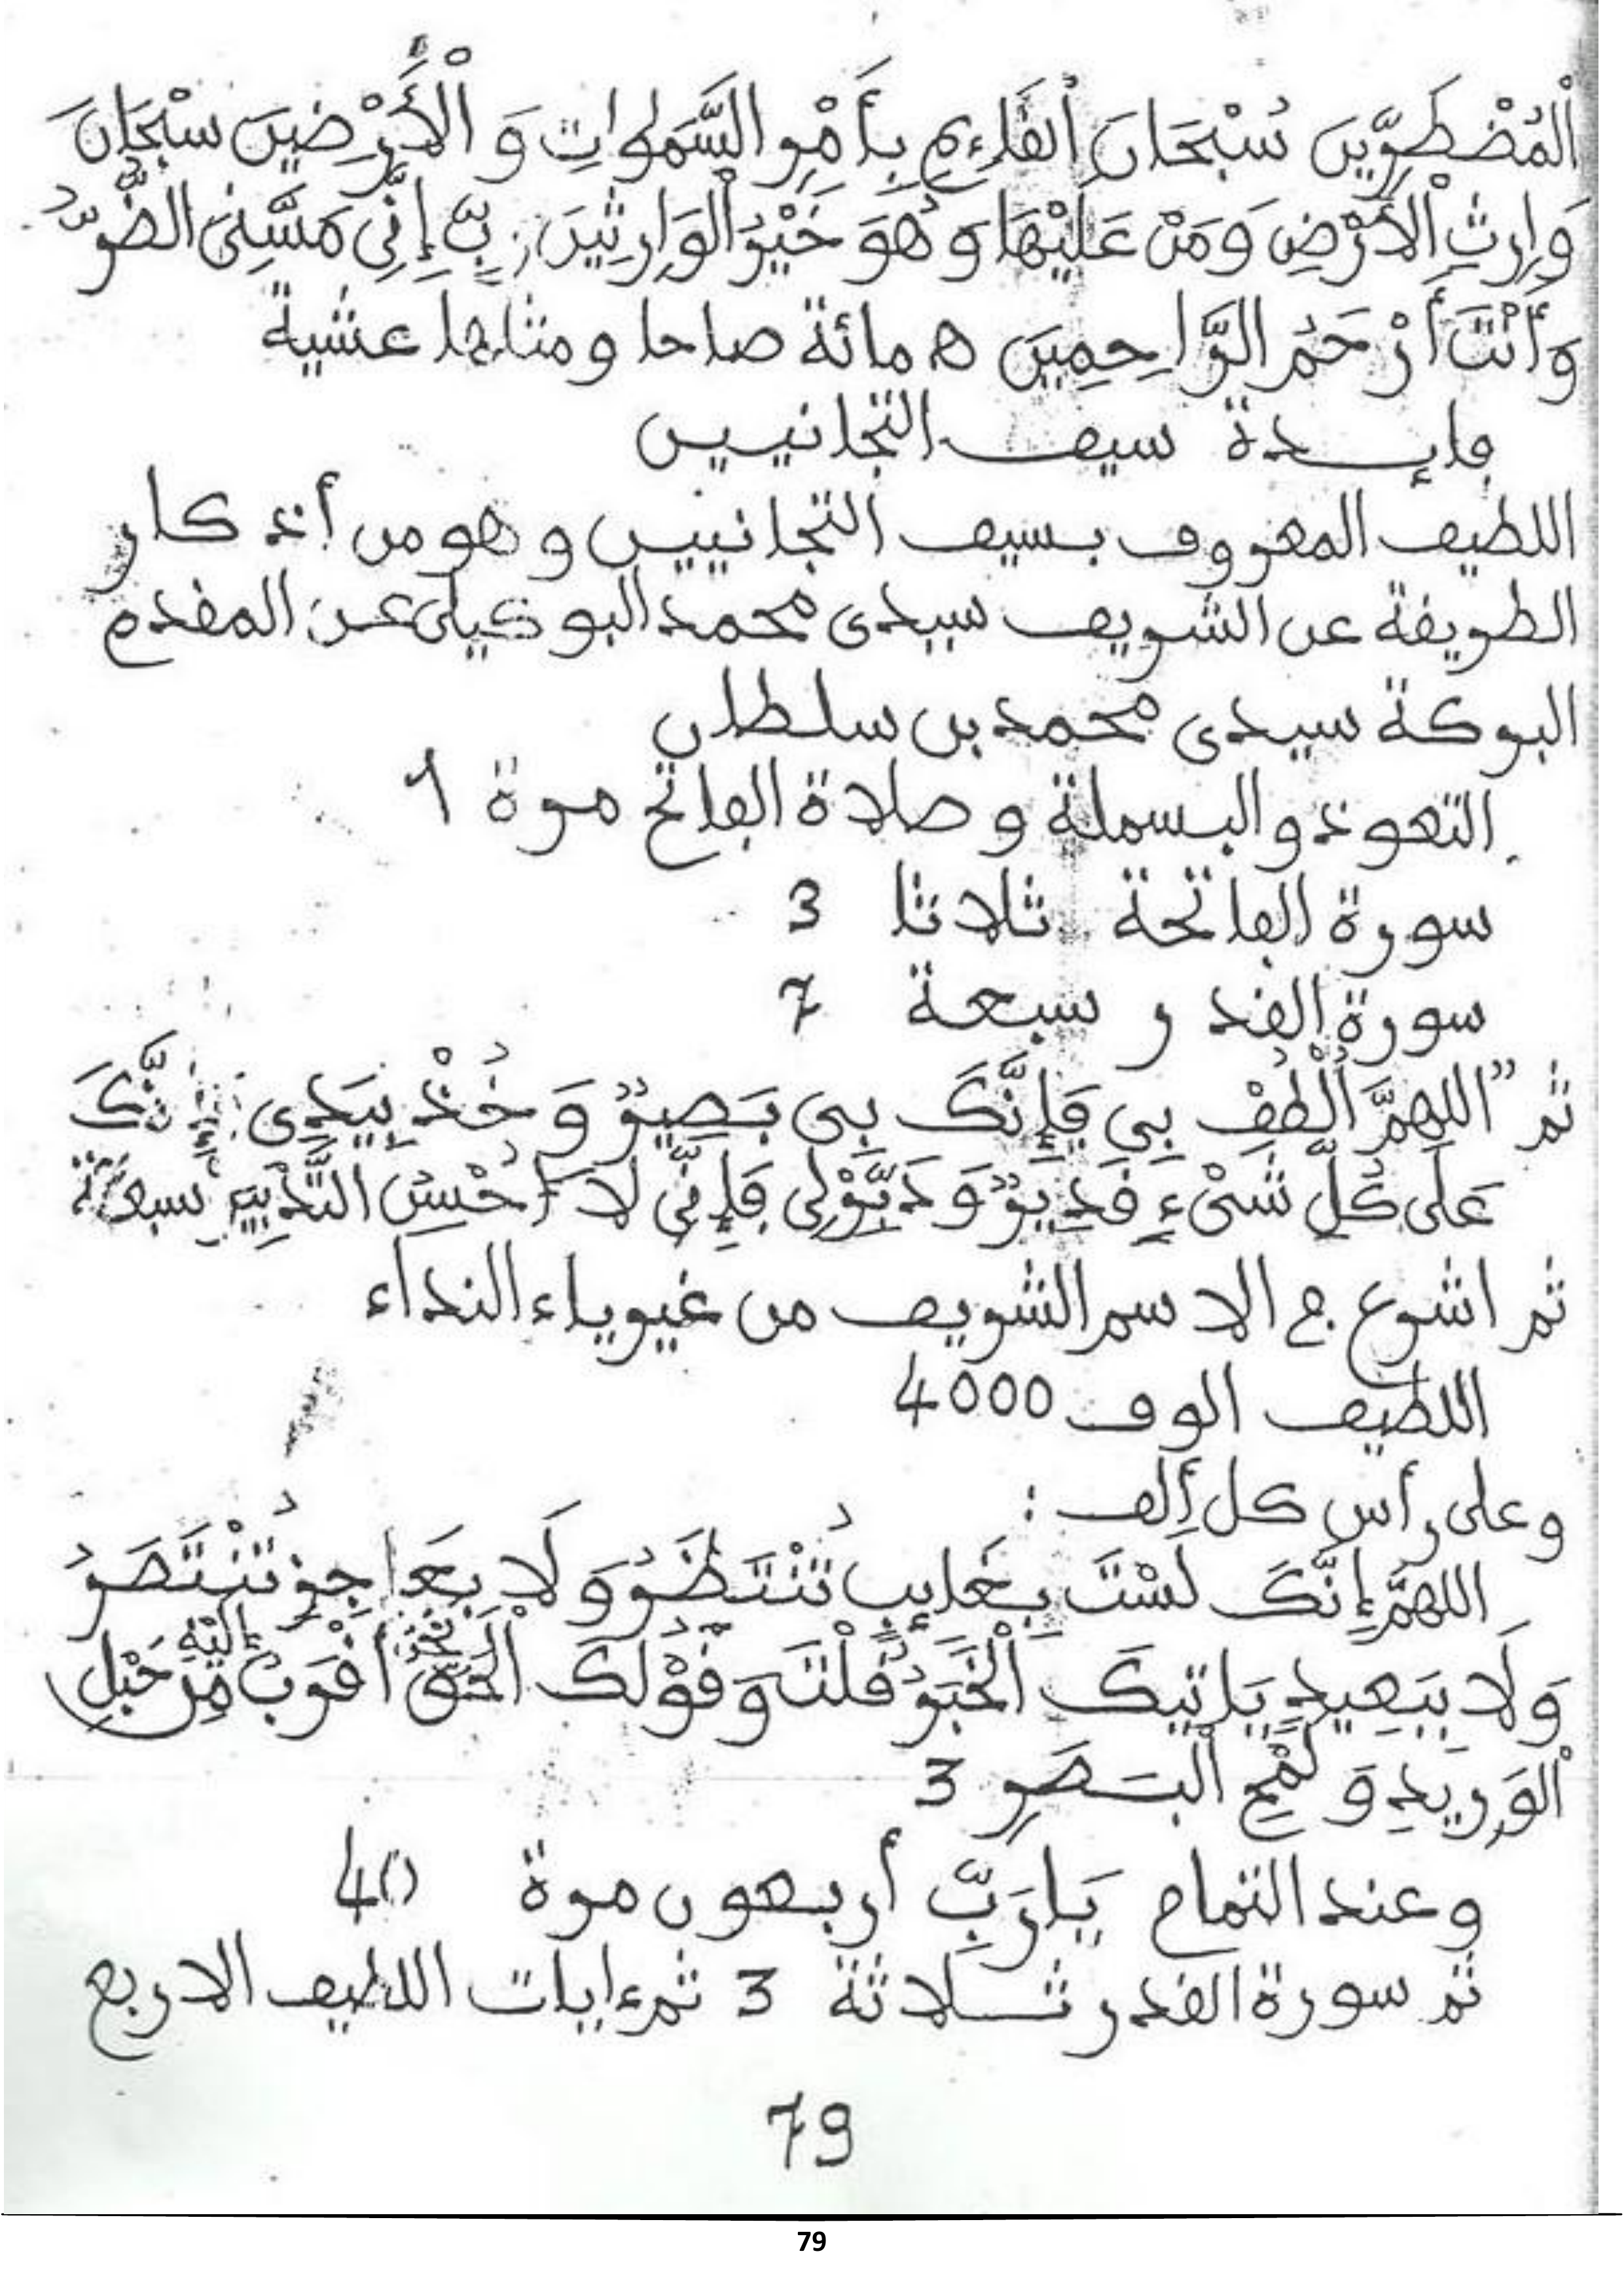 اَلْمُضْطَرِّينَ سُبْحَانَ اَلْقَاءِيمِ بِأَمْرِ السَّمَاوَاتِ وَ الْأَرْضِينَ سُبْحَانَ
وَارِثِ الْأَرْضِ وَمَنْ عَلَيْهَا وَهُوَ خَيْرُ الْوَارِثِينَ رَبِّ إِنِّي مَسَّنِيَ الضُّرُّ
وَأَنْتَ أَرْحَمُ الرَّاحِمِينَ ه مائة صباحا ومثلها عشية
فإيدة سيف التجانيين
اللطيف المعروف بسيف التجانيين وهو من أذكار
الطريقة عن الشريف سيدى محمد البوكيلى عن المقدم
البركة سيدى محمد بن سلطان
التعوذ والبسملة وصلاة الفاتح مرة 1
سورة الفاتحة ثلاثا 3
سورة القدر سبعة 7
ثم "اللهمَّ اُلْطُفْ بِي فَإِنَّكَ بِى بَصِيرٌ وَخُذْ بِيَدِى إِنَّكَ
عَلَى كُلِّ شَىْءٍ قَدِيرٌ وَدَبِّرْلِى فَإِنِّى لَا أُحْسِنُ التَّدْبِيرَ سبعة
ثم اشرع ج الاسم الشريف من غير ياء النداء
اللطيف الوف 4000
وعلى رأس كل ألف :
اللهمَّ إِنَّكَ لَسْتَ بِغَايِبٍ تُنْتَظَرُ وَلَا بِعَاجِزٍ تُنْتَصَرُ
وَلَا بِبَعِيدٍ يَاتِيكَ اَلْخَبَرُ قُلْتَ وَقَوْلُكَ الْحَقُّ نَحْنُ أَقْرَبُ إِلَيْهِ مِنْ حَبْلِ
اَلْوَرِيدِ وَ لَمْحِ الْبَصَرِ 3
وعند التمام يَارَبِّ أربعون مرة 40
ثم سورة القدر ثلاثة 3 ثم ءايات اللطيف الاربع
79
79